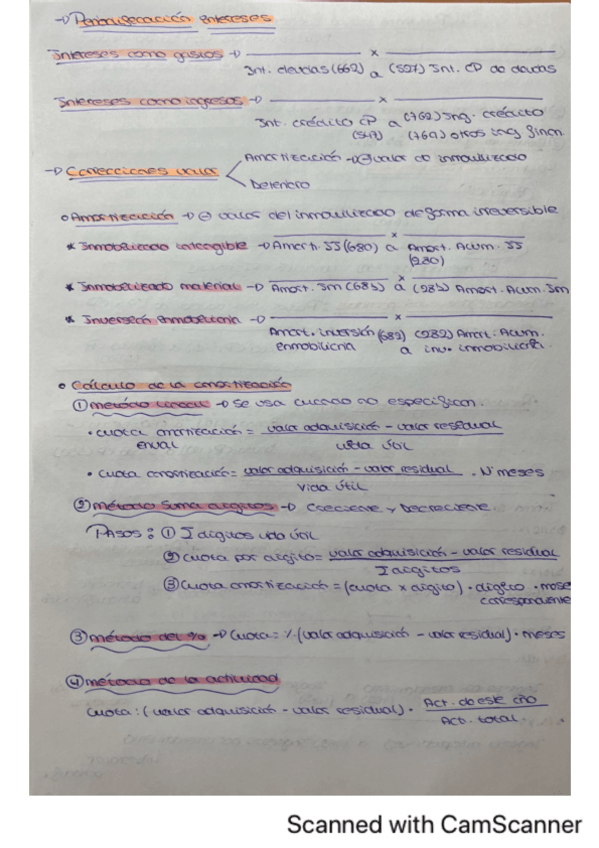 → Periodificación intereses
Intereses como gastos → ——— x ———
Int. deudas (662) a (527) Int. CP de deudas
Intereses como ingresos → ——— x ———
Int. crédito CP a (762) Ing. crédito
(547) (769) otros ing finan
→ Correcciones valor
Amortización → ⊖ valor de inmovilizado
Deterioro
o Amortización → ⊖ valor del inmovilizado de forma irreversible
* Inmovilizado intangible → Amort. II (680) a Amort. Acum. II
(280)
* Inmovilizado material → Amort. Im (681) a (281) Amort. Acum. Im
* Inversión inmobiliaria →
Amort. inversión (682) (282) Amort. Acum.
inmobiliaria a inv. inmobiliaria.
• Cálculo de la amortización
① método lineal → Se usa cuando no especifican.
• cuota amortización = valor adquisición - valor residual
anual vida útil
• cuota amortización = valor adquisición - valor residual . Nº meses
vida útil
② método Suma dígitos → Creciente y Decreciente
Pasos : ① Σ dígitos vida útil
② cuota por dígito = valor adquisición - valor residual
Σ dígitos
③ Cuota amortización = (cuota x dígito) · dígito · meses
correspondiente
③ método del % → Cuota = % (valor adquisición - valor residual) · meses
④ método de la actividad
Cuota : (valor adquisición - valor residual) · Act. de este año
Act. total
Scanned with CamScanner